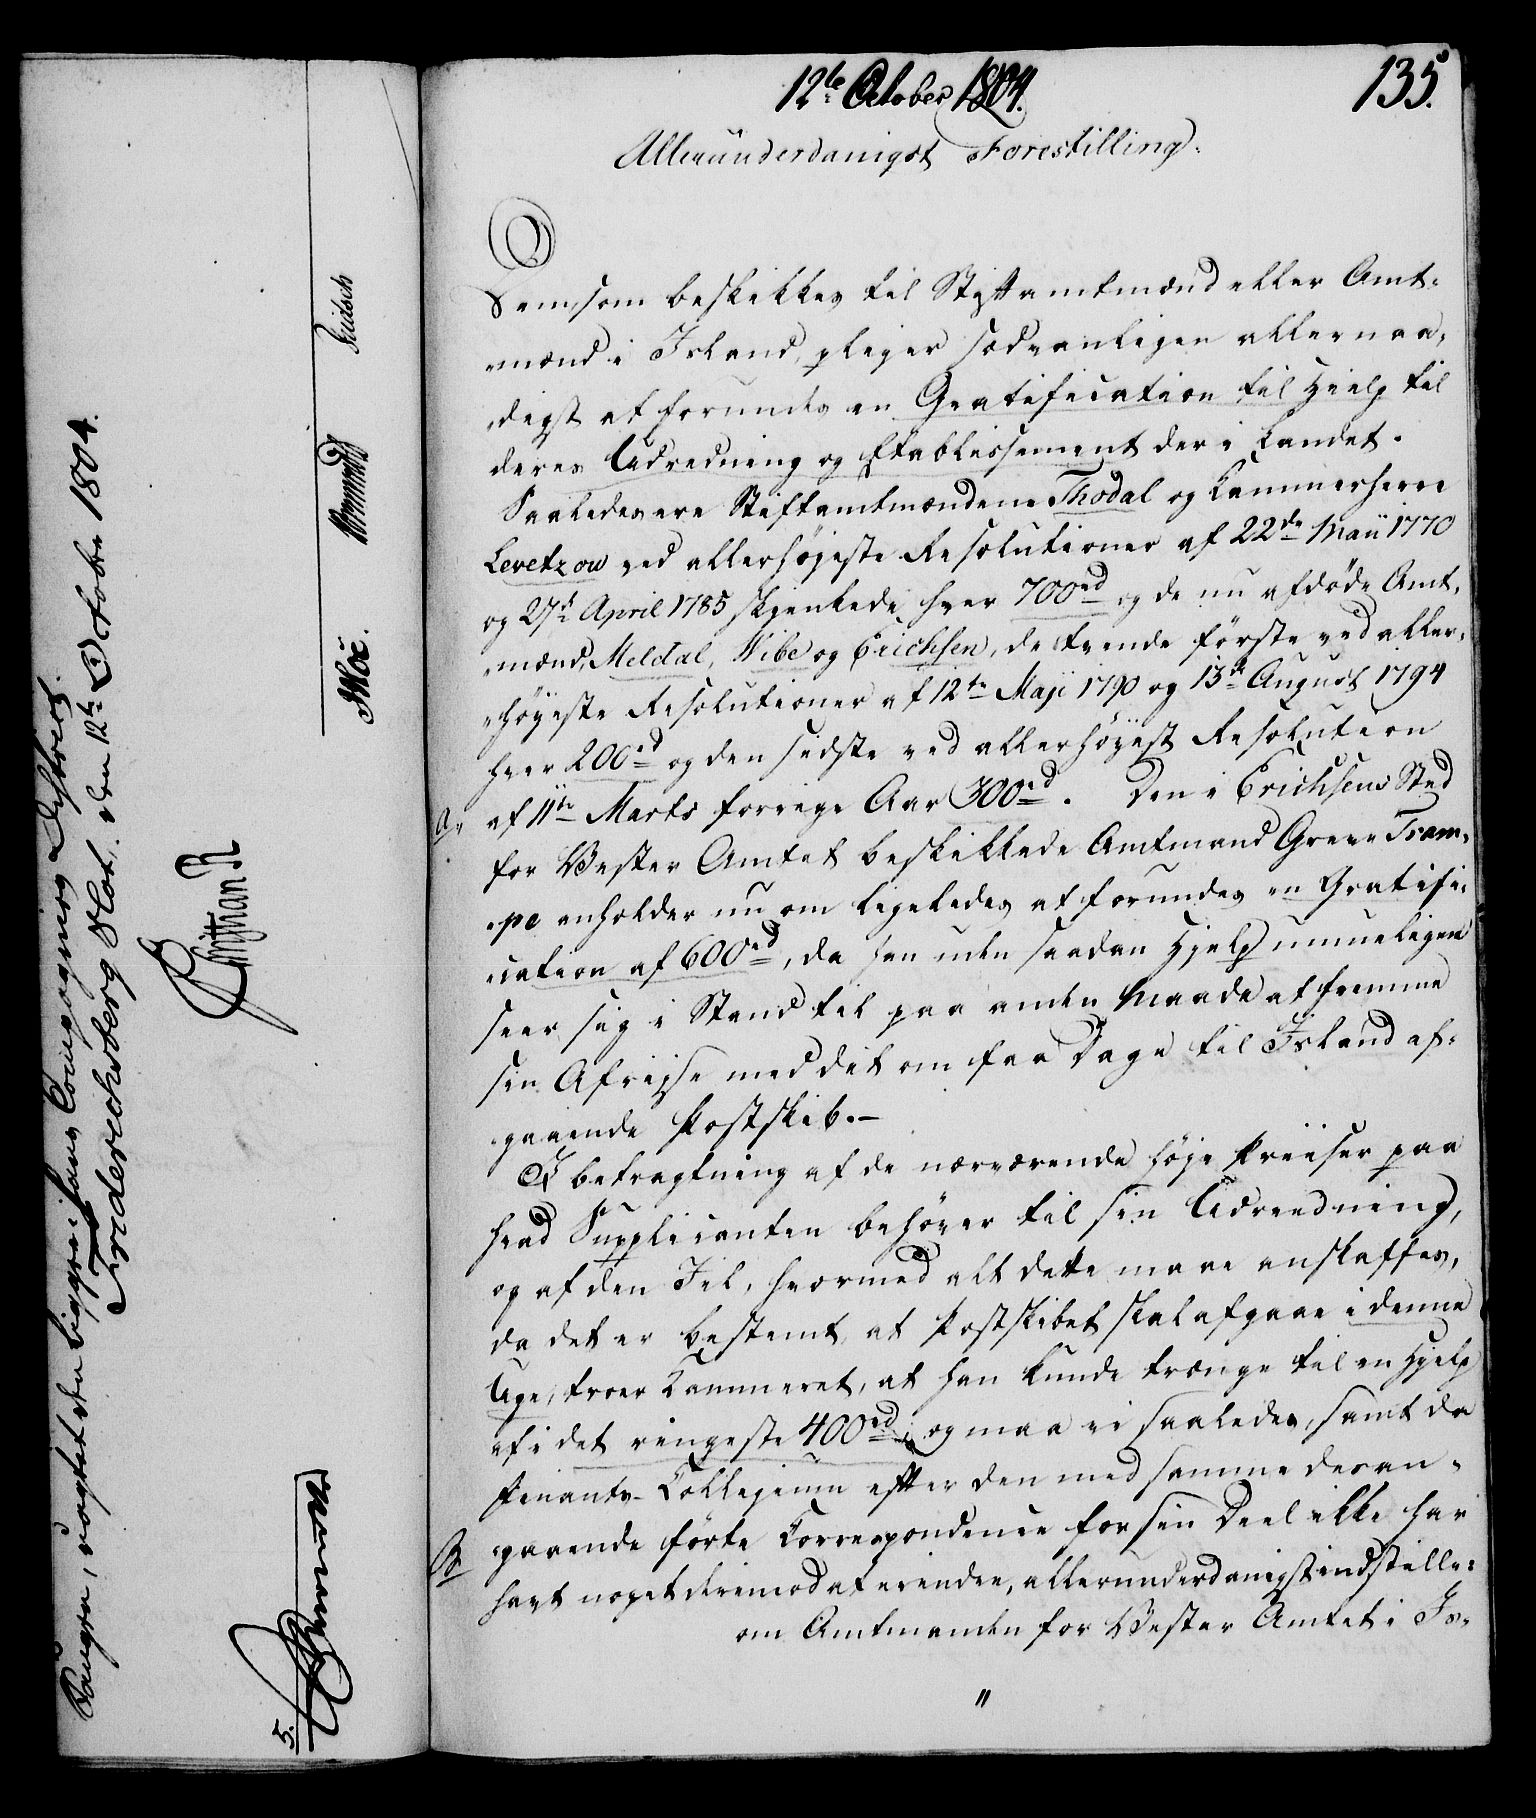 12te October 1804.
135.
Allerunderdanigst Forestilling.
Demsom beskikkes til Stiftamtmænd eller Amt-
mænd i Island, pleyer sædvanligen allernaa-
digst at forundes en Gratification til Hielp til
deres Udredning og Etablissement der i Landet.
Saaledes ere Stiftamtmændene Thodal og Kammerherre
Levetzow ved allerhøjeste Resolutioner af 22de Maii 1770
og 27de April 1785 skjenkede hver 700rd og de nu afdøde Amt-
mænd, Meldal, Vibe og Erichsen, de tvende første ved aller-
høyeste Resolutioner af 12te Maji 1790 og 13de August 1794
hver 200rd og den sidste ved allerhøyest Resolution
af 11te Marts forrige Aar 300rd. Den i Erichsens Sted
a,
for Vester Amtet beskikkede Amtmand Greve Tram-
pe anholder nu om ligeledes at forundes en Gratifi-
cation af 600rd, da han uden saadan Hjelp umueligen
seer sig i Stand til paa anden Maade at fremme
sin Afrejse med det om faa Dage til Island af-
gaaende Postskib.-
I betragtning af de nærværende høje Priiser paa
hvad Supplicanten behøver til sin Udreedning,
og af den Iil, hvormed alt dette maae anskaffes,
da det er bestemt, at Postskibet skal afgaae i denne
Uge, troer Kammeret, at han kunde trænge til en Hjelp
af i det ringeste 400rd; og maa vi saaledes, samt da
Finants-Collegium efter den med samme desan-
gaaende førte Correspondence for sin Deel ikke har
B
havt noget derimod at erindre, allerunderdanigst indstille:
om Amtmanden for Vester Amtet i Is-
"
den liggre i hans Compagnier
Friderichsberg Slot, den 12te October 1804.
Christian R
Moe.
5.